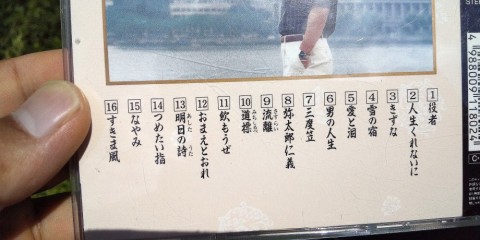 1 役者
2 人生くれないに
3 きずな
4 雪の宿
5 愛と泪
6 男の人生
7 三度笠
8 弥太郎仁義
9 流離
さすらい
10 道標
みちしるべ
11 飲もうぜ
12 おまえとおれ
13 明日の詩
あした うた
14 つめたい指
15 なやみ
16 すきま風
4988009118024